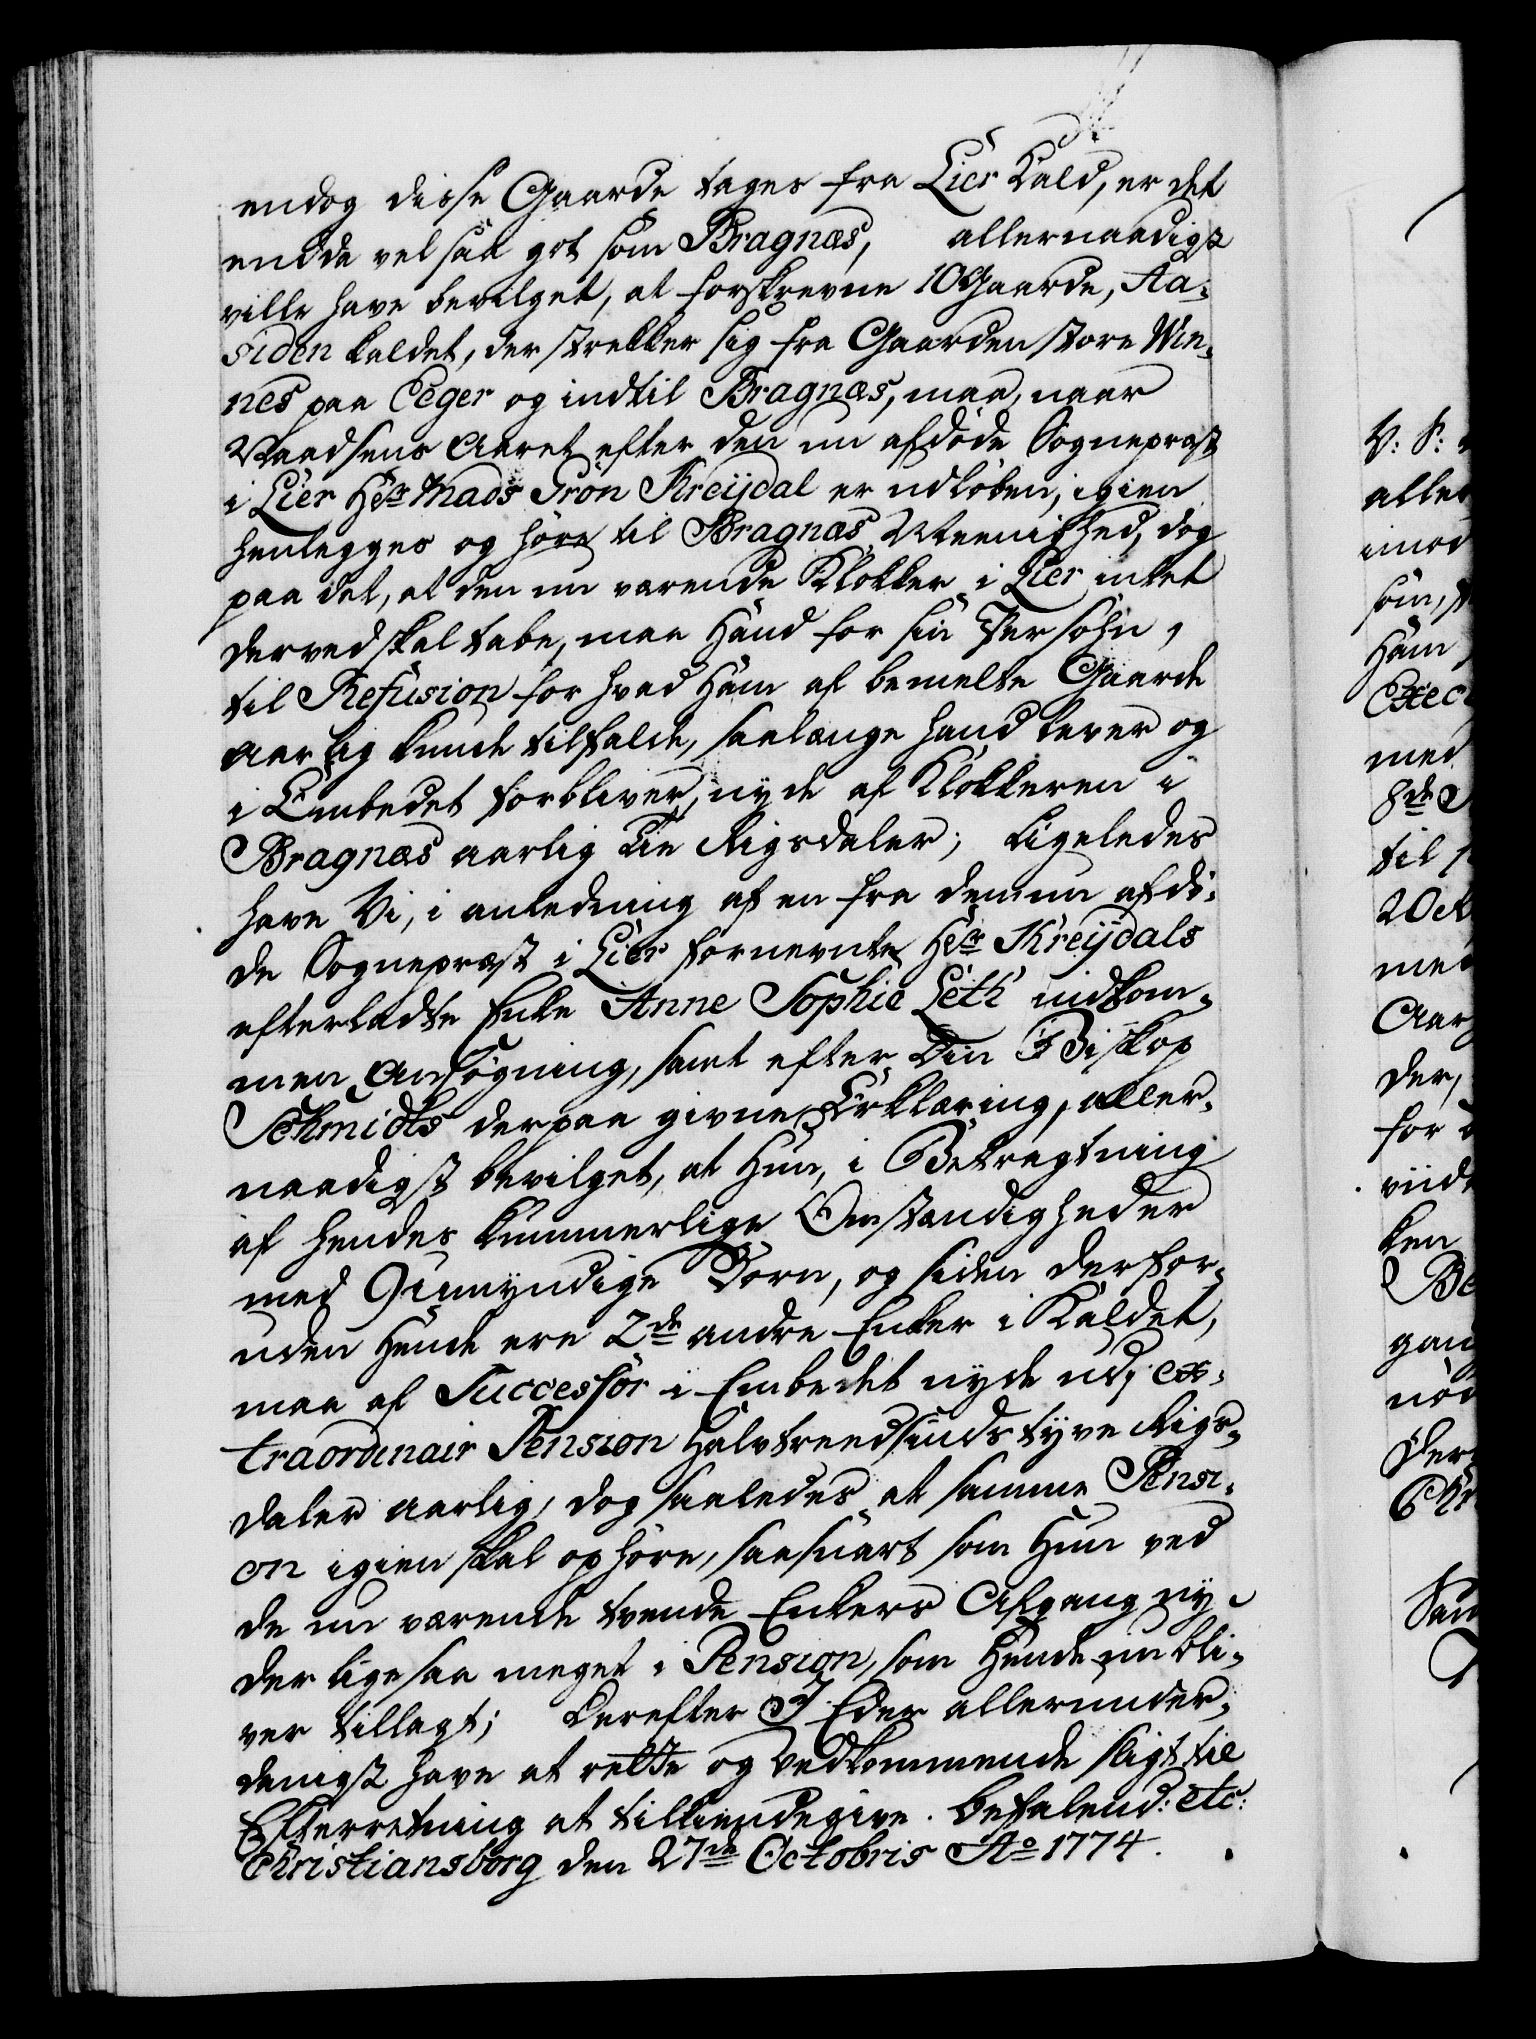 endog disse Gaarde tages fra Lier Kald, er det
endda vel saa got som Bragnæs, allernaadigst
ville have bevilget, at forskrevne 10 Gaarde, Aa-
siden kaldet, der strekker sig fra Gaarden store Win-
nes paa Eeger og indtil Bragnæs, maa, naar
Naadsens Aaret efter den nu afdöde Sognepræst
i Lier Hr Mads Grön Kreijdal er udlöben, igien
henlegges og höre til Bragnæs Meenighed, dog
paa det, at den nu værende Klokker i Lier intet
derved skal tabe, maa Hand for sin Persohn,
til Refusion for hvad Ham af bemelte Gaarde
aarlig kunde tilfalde, saalænge hand lever og
i Embedet forbliver, nyde af Klokkeren i
Bragnæs aarlig Tie Rigsdaler; Ligeledes
have Vi, i anledning af en fra den nu afdö-
de Sognepræst i Lier fornevnte Hr Kreijdals
efterladte Enke Anne Sophie Leth indkom-
men Ansögning, samt efter Din Biskop
Schmidts derpaa givne Erklæring, aller-
naadigst bevilget, at Hun, i Betragtning
af hendes kummerlige Omstændigheder
med 9 umyndige Börn, og siden derfor-
uden Hende ere 2de andre Enker i Kaldet,
maa af Successor i Embedet nyde udj ex-
traordinair Pension Halvtreedsindstyve Rigs-
daler aarlig, dog saaledes at samme Pensi-
on igien skal ophöre, saasnart som Hun ved
de nu værende tvende Enkers Afgang ny-
der lige saa meget i Pension, som Hende nu bli-
ver tillagt; Derefter I Eder allerunder-
danigst have at rette og Vedkommende sligt til
Efterretning at tilkiendegive. Befalend: etc:
Christiansborg den 27de Octobris Ao 1774.